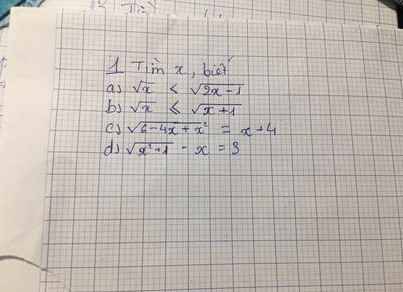 1 Tìm x, biết
a) √x < √2x-1
b) √x ≤ √x+1
c) √6-4x+x² = x+4
d) √x²+1 - x = 3